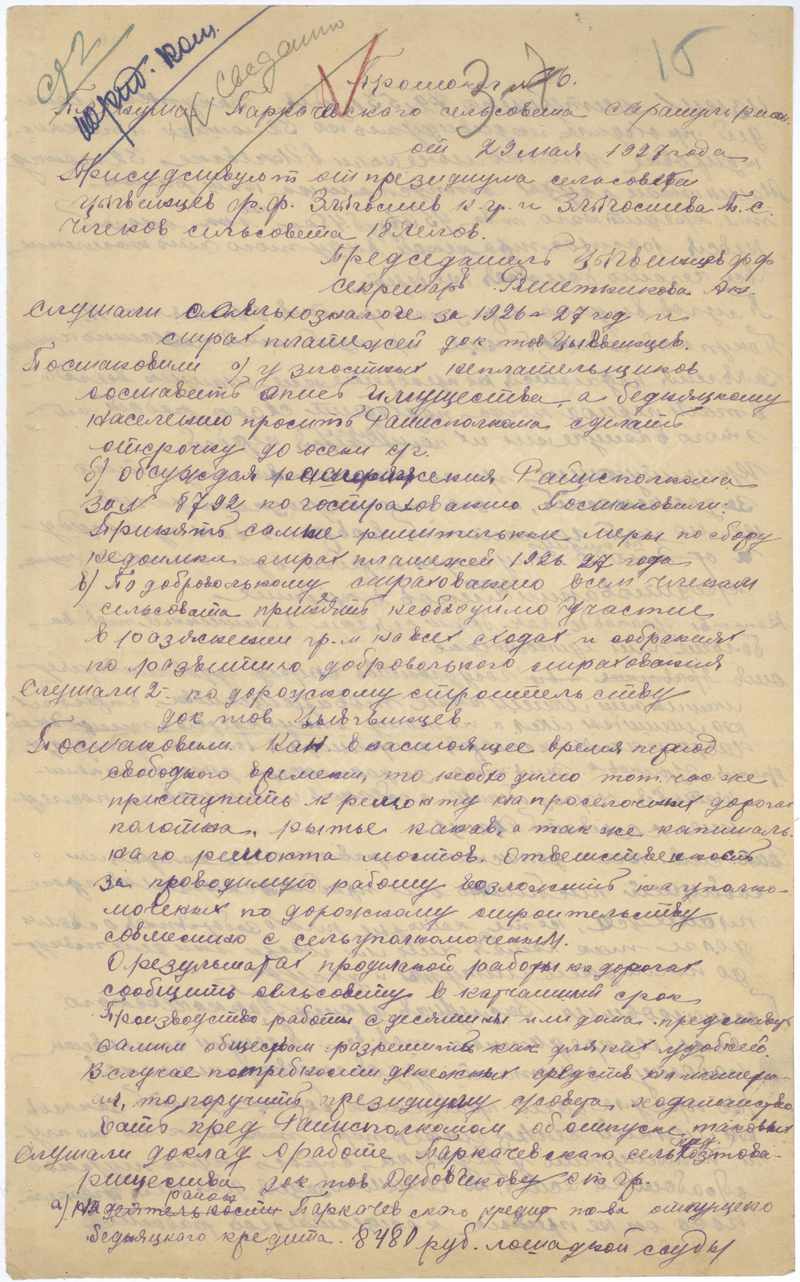 15
к сведению
Протокол № 6.
Пленума Паркачевского сельсовета
от 29 мая 1927 года
Присудствуют от президиума сельсовета
Ф.Ф. К.У. и П.С.
членов сельсовета 18 челов.
Председатель Ф Ф
секретарь Решетникова
Слушали о сельхозналоге за 1926-27 год и
страх платежей док тов
Постановили а) у злостных неплательщиков
составить опись имущества, а бедняцкому
населению просить Райисполкома сделать
отсрочку до осени с/г.
б) обсуждая распоряжения Райисполкома
за № 8792 по госстрахованию Постановили:
Принять самые решительные меры по сбору
недоимки страх платежей 1926 27 года
в) По добровольному страхованию всем членам
сельсовета принять необходимо участие
в раз'яснении гр.н на всех сходах и собраниях
по развитию добровольного страхования
Слушали 2- по дорожскому строительству
док тов
Постановили. Как в настоящее время период
свободного времени, то необходимо тот час же
приступить к ремонту на проселочных дорогах
полотна, рытье канав, а так же капиталь-
наго ремонта мостов. Ответственность
за проводимую работу возложить на уполно-
моченых по дорожскому строительству
совместно с сельуполномоченым.
О результатах проделаной работы на дорогах
сообщить сельсовету в кратчайший срок
Производство работы с десятины или дома представ
самим обществом разрешить как для них удобней.
В случае потребности денежных средств на матери-
ал, то поручить президиуму с/совета ходатайство
вать пред Райисполкомом об отпуске таковых
Слушали доклад о работе Паркачевскаго сель това-
рищества док тов
а) район
деятельности Паркачевского кредит това отпущено
бедняцкого кредита. 8480 руб. лошадной ссуды